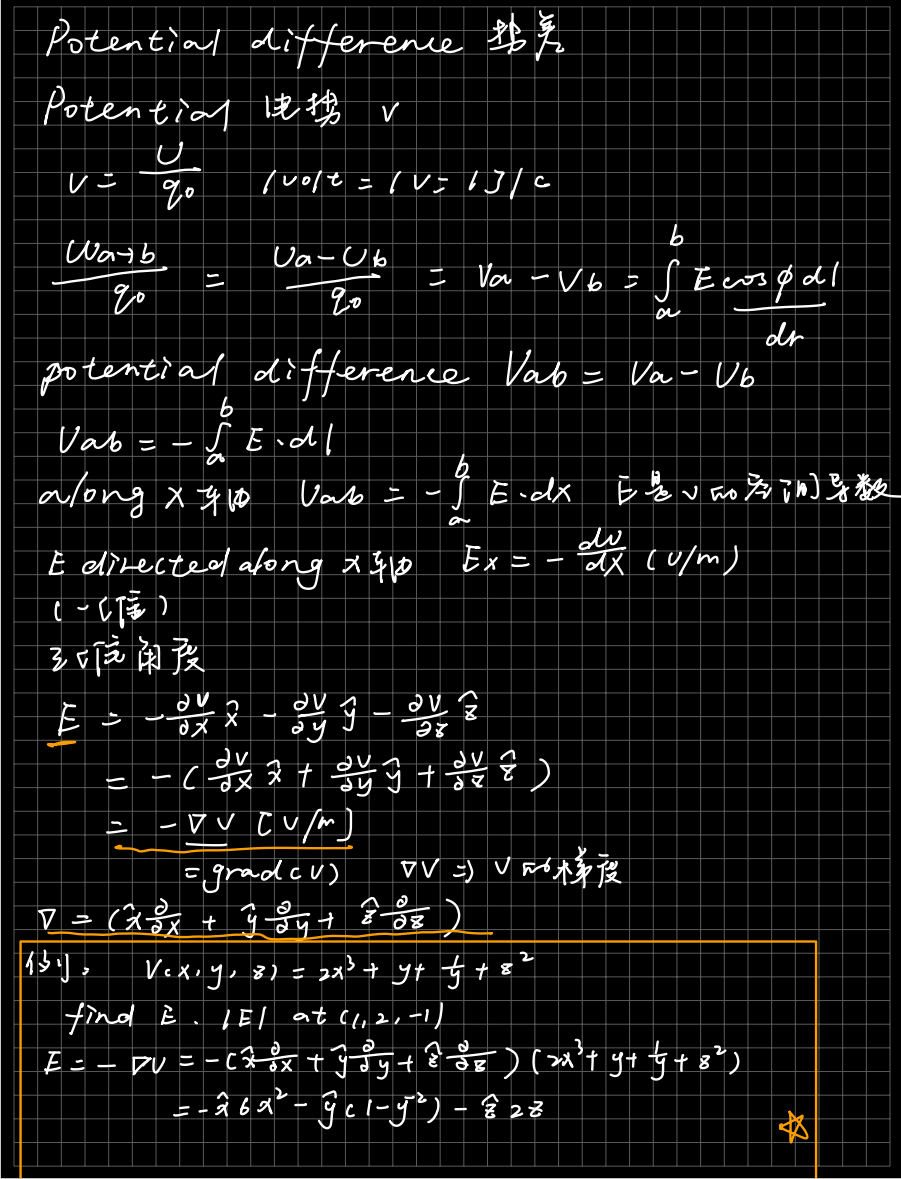 Potential difference 势差
Potential 电势 V
V = U/q₀ 1volt = 1V = 1J/C
Wa→b/q₀ = (Ua-Ub)/q₀ = Va - Vb = ∫ₐᵇ E cosφ dl
dr
potential difference Vab = Va - Vb
Vab = -∫ₐᵇ E·dl
along x轴 Vab = -∫ₐᵇ E·dx E是V的空间导数
E directed along x轴 Ex = -dv/dx (V/m)
(一维)
三维角度
E = -∂V/∂x x̂ - ∂V/∂y ŷ - ∂V/∂z ẑ
= -(∂V/∂x x̂ + ∂V/∂y ŷ + ∂V/∂z ẑ)
= -∇V [V/m]
= grad(V) ∇V ⇒ V的梯度
∇ = (x̂ ∂/∂x + ŷ ∂/∂y + ẑ ∂/∂z)
例, V(x,y,z) = 2x³ + y + 1/y + z²
find E. |E| at (1,2,-1)
E = -∇V = -(x̂ ∂/∂x + ŷ ∂/∂y + ẑ ∂/∂z)(2x³ + y + 1/y + z²)
= -x̂6x² - ŷ(1-y⁻²) - ẑ2z